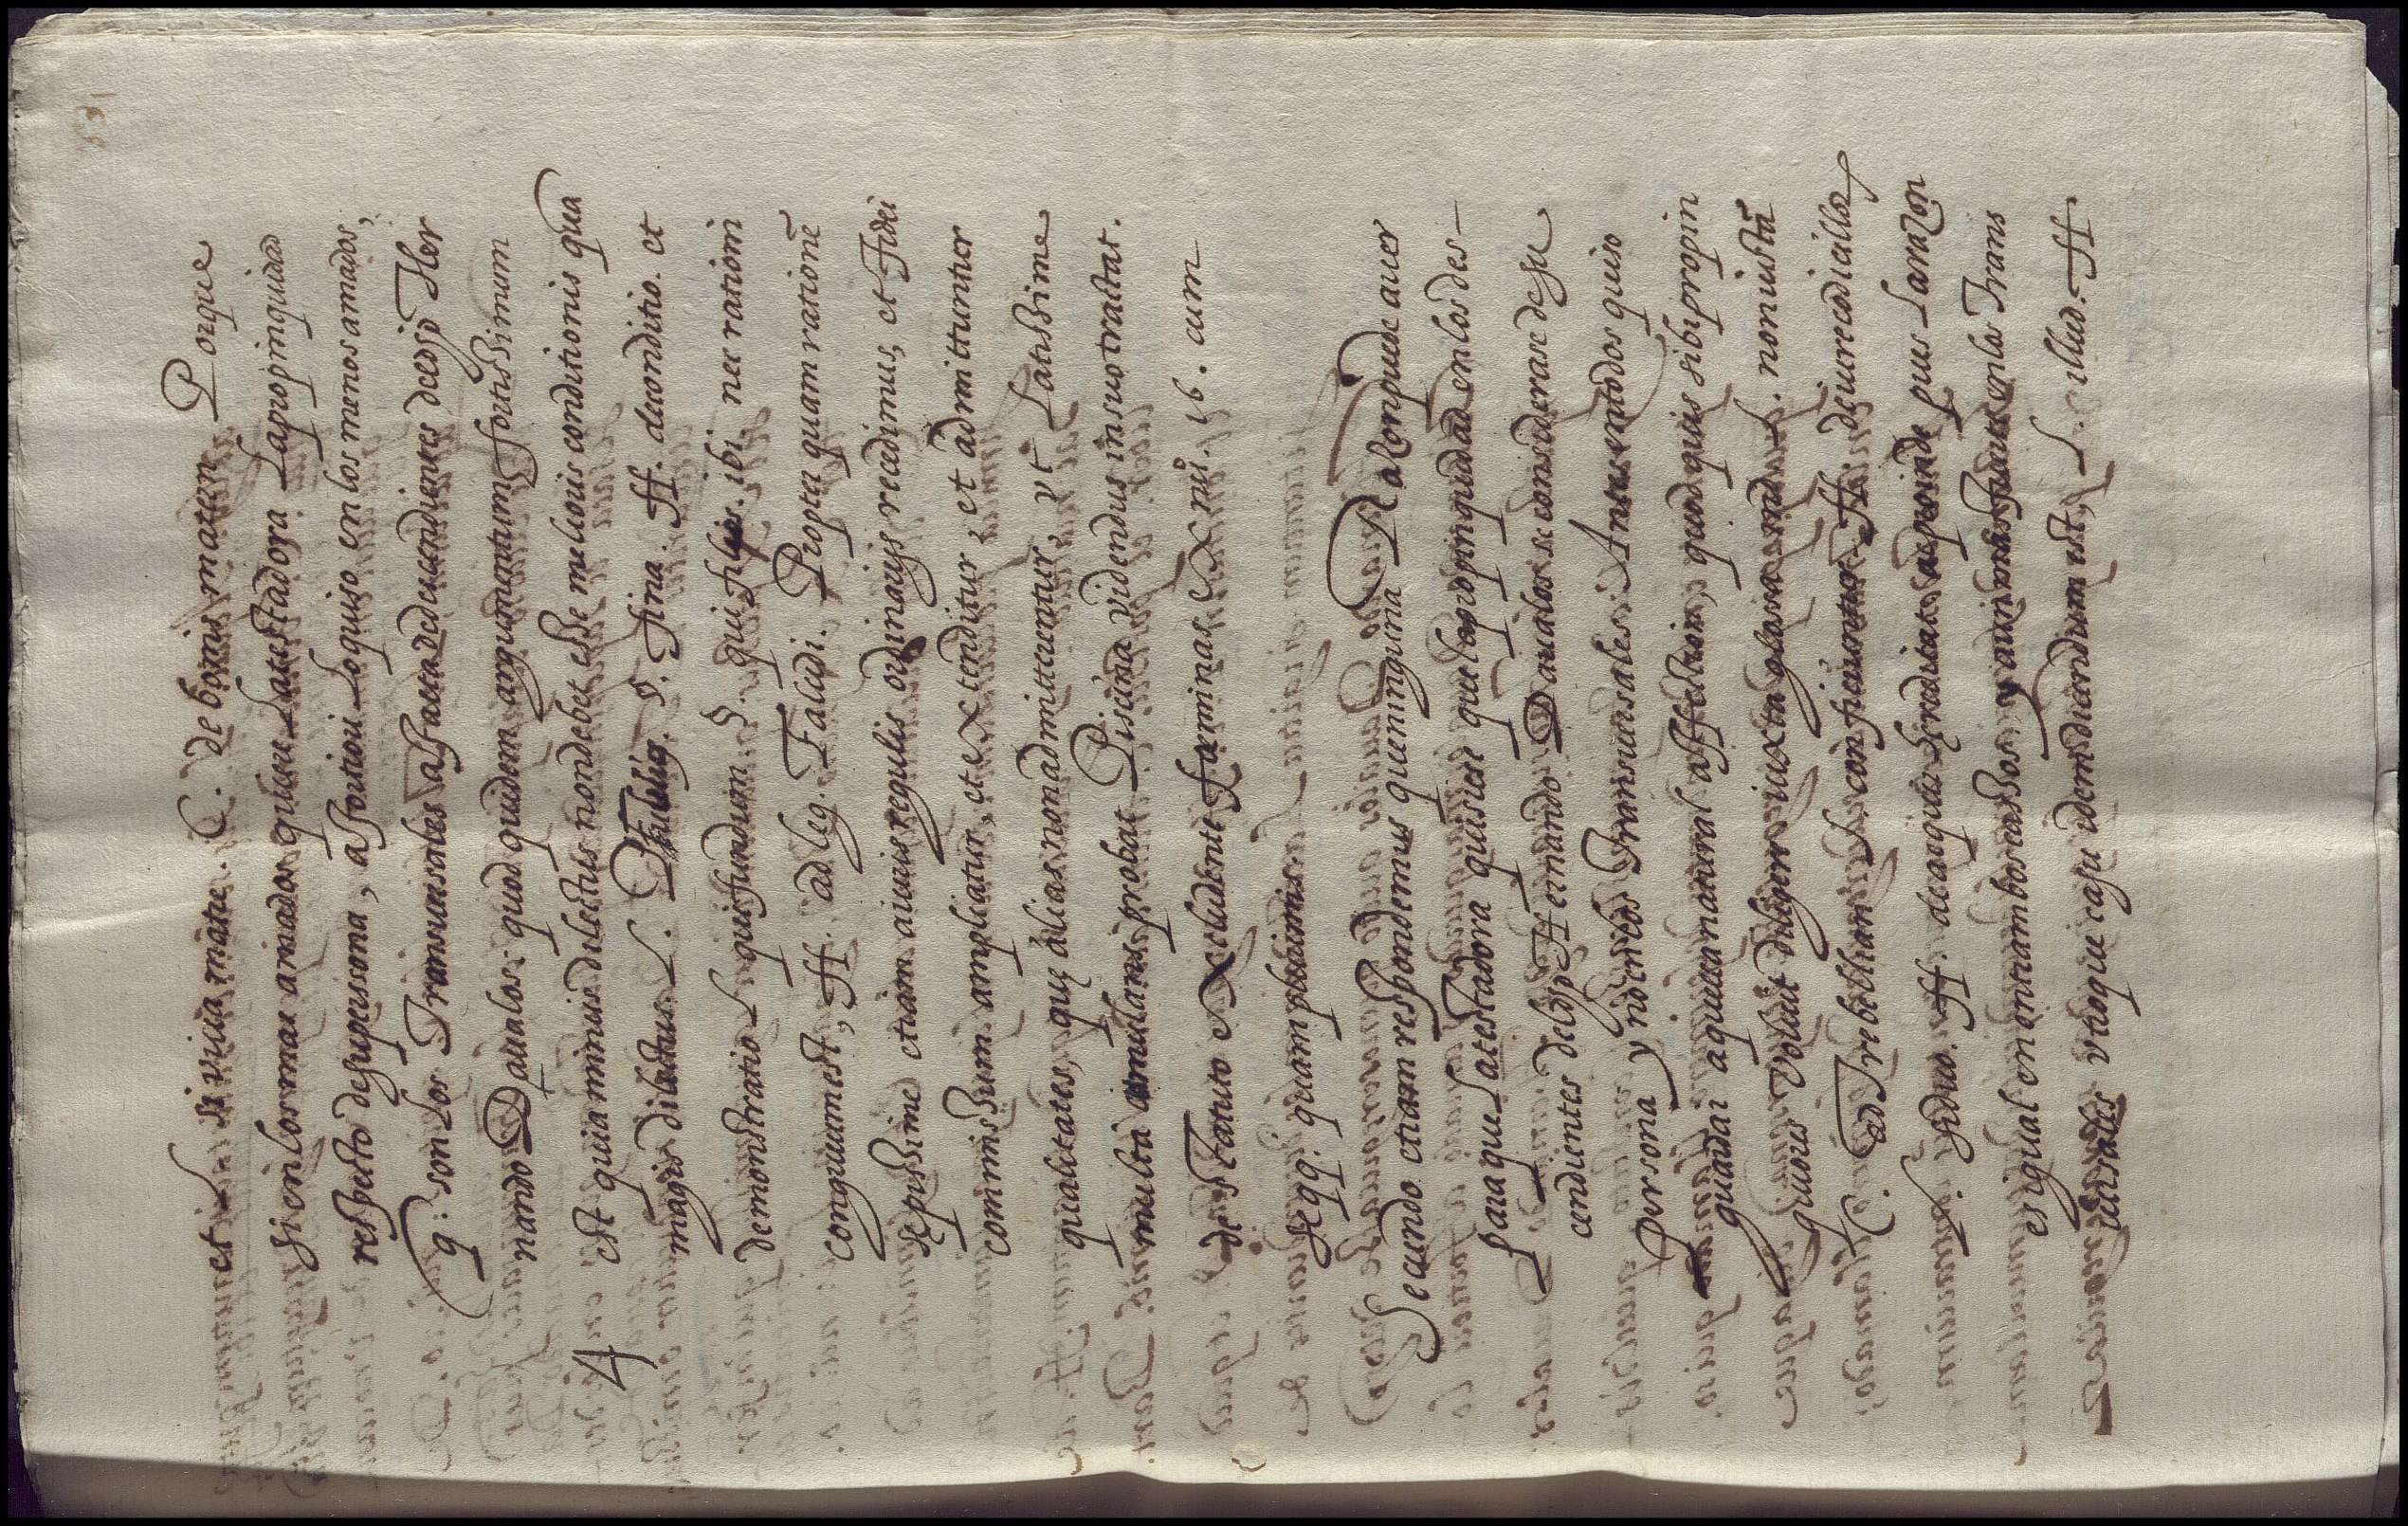 et L. si viua matre. C. de bonis matern Porque
si en los mas amados quiere La testadora La propinquidad
respecto de su persona, a fortiori Lo quiso en los menos amados,
q: son los Transuersales a facta dedescendientes deeDsp Her
nando Daualos: quod quidem argumentum fortissimum
est quia minus dilectus non debet esse melioris conditionis qua
magis dilectus L. Publius. §. fina. ff. de conditio. et
demonstratio L quis fundum. §. qui filios. ibi. nec rationi
congruum est, ff. ad leg. Falcidi. Propter quam rationẽ
sepissime etiam a iuris regulis ordinarijs recedimus, et Fidei
commissum ampliatur, et extenditur, et admittuntur
qualitates, quę alias non admittuntur, vt Latissime
multa cumulans probat Piscina videndus in suo tractat.
de statuto excludente fæminas. Ex nũ. 16. cum
seqq. quam plurimis.
Secundo etiam respondemus que ninguna Razon puede auer
para que La testadora quisiere que la propinquidad en los des-
cendientes del dsp Hernando Daualos se considerase de su
persona y no en los Transuersales. Antes en todos quiso
guardar a quella natural affection, quod quis sibi propin
quiores voluit diligere iuxta glosa. in d. L. non iustã
C. ad Trebellian L. conficiuntur. ff. de iure codicillor
L. fiduo. ff. de acquir hereditate ac proinde pues La razon
es igual en entrambos cassos, y aun mas fauorte en lo Trans
uersales vtroque casu idem dicendum est, L. illud. ff.
4